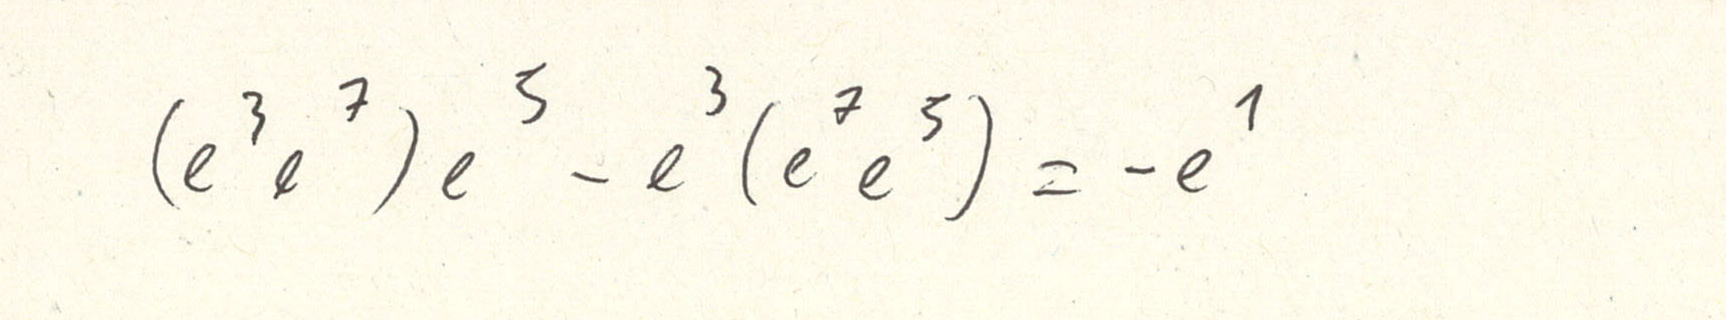 (e³e⁷)e⁵ - e³(e⁷e⁵) = -e¹